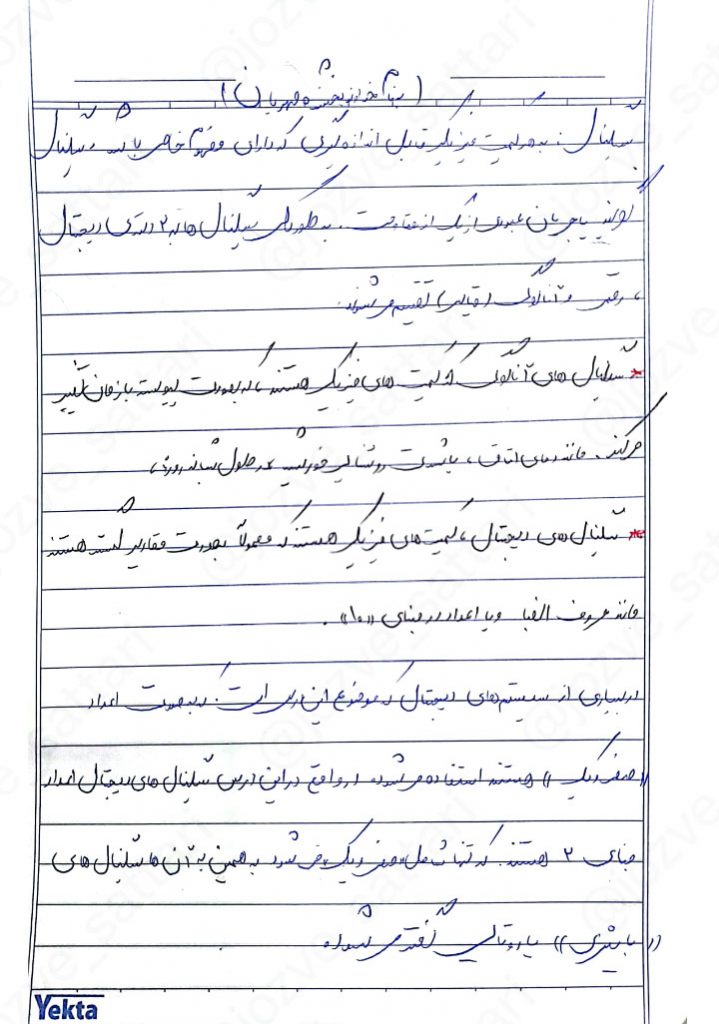 (بنام خداوند بخشنده مهربان)
سیگنال: به هر کمیت فیزیکی قابل اندازه گیری که دارای مفهوم خاص باشد، سیگنال
گویند یا جریان عبوری از یک از مقاومت. به طور کلی سیگنال ها به ۲ دسته‌ی دیجیتال
، رقمی و آنالوگ (قیاسی) تقسیم می شوند.
* سیگنال های آنالوگ کمیت های فیزیکی هستند که بصورت پیوسته با زمان تغییر
می کنند. مانند دمای اتاق، یا شدت روشنایی خورشید در طول شبانه روز،
* سیگنال های دیجیتال، کمیت های فیزیکی هستند که معمولاً بصورت مقادیر گسسته هستند
مانند حروف الفبا و یا اعداد در مبنای «۱۰».
در بسیاری از سیستم های دیجیتال که موضوع این درس است. به صورت اعداد
«صفر و یک» هستند استفاده می شود. در واقع در این درس سیگنال های دیجیتال اعداد
مبنای ۲ هستند که تنها شامل صفر و یک می شود به همین به آن ها سیگنال های
«باینری» یا دوتایی گفته می شود.
Yekta
@jozve_sattari